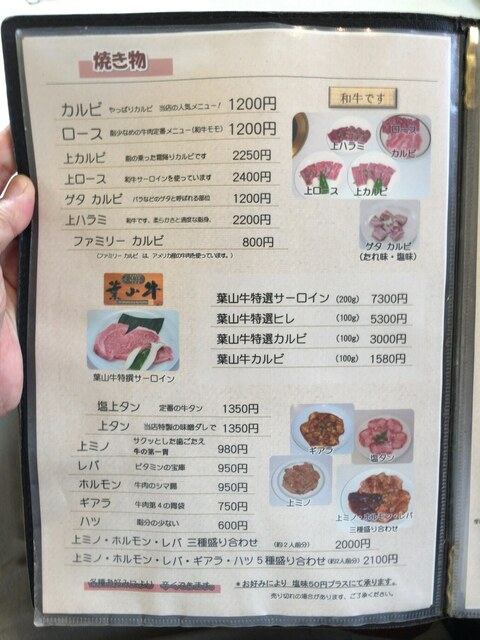 焼き物
和牛です
カルビ やっぱりカルビ 当店の人気メニュー! 1200円
ロース 脂少なめの牛肉定番メニュー(和牛モモ) 1200円
上カルビ 脂の乗った霜降りカルビです 2250円
上ロース 和牛サーロインを使っています 2400円
ゲタ カルビ バラなどのゲタと呼ばれる部位 1200円
上ハラミ 和牛です。柔らかさと適度な脂身。 2200円
ファミリー カルビ 800円
(ファミリー カルビ は、アメリカ産の牛肉を使っています。)
上ハラミ
カルビ
上ロース
上カルビ
ゲタ カルビ
(たれ味・塩味)
葉山牛
葉山牛特選サーロイン
葉山牛特選サーロイン (200g) 7300円
葉山牛特選ヒレ (100g) 5300円
葉山牛特選カルビ (100g) 3000円
葉山牛カルビ (100g) 1580円
塩上タン 定番の牛タン 1350円
上タン 当店特製の味噌ダレで 1350円
上ミノ サクッとした歯ごたえ 牛の第一胃 980円
レバ ビタミンの宝庫 950円
ホルモン 牛肉のシマ腸 950円
ギアラ 牛肉第4の胃袋 750円
ハツ 脂分の少ない 600円
ギアラ
塩タン
上ミノ
上ミノ・ホルモン・レバ
三種盛り合わせ
上ミノ・ホルモン・レバ 三種盛り合わせ (約2人前分) 2000円
上ミノ・ホルモン・レバ・ギアラ・ハツ 5種盛り合わせ (約2人前分) 2100円
*お好みにより 塩味50円プラスにて承ります。
売り切れの場合があります、ご了承ください。